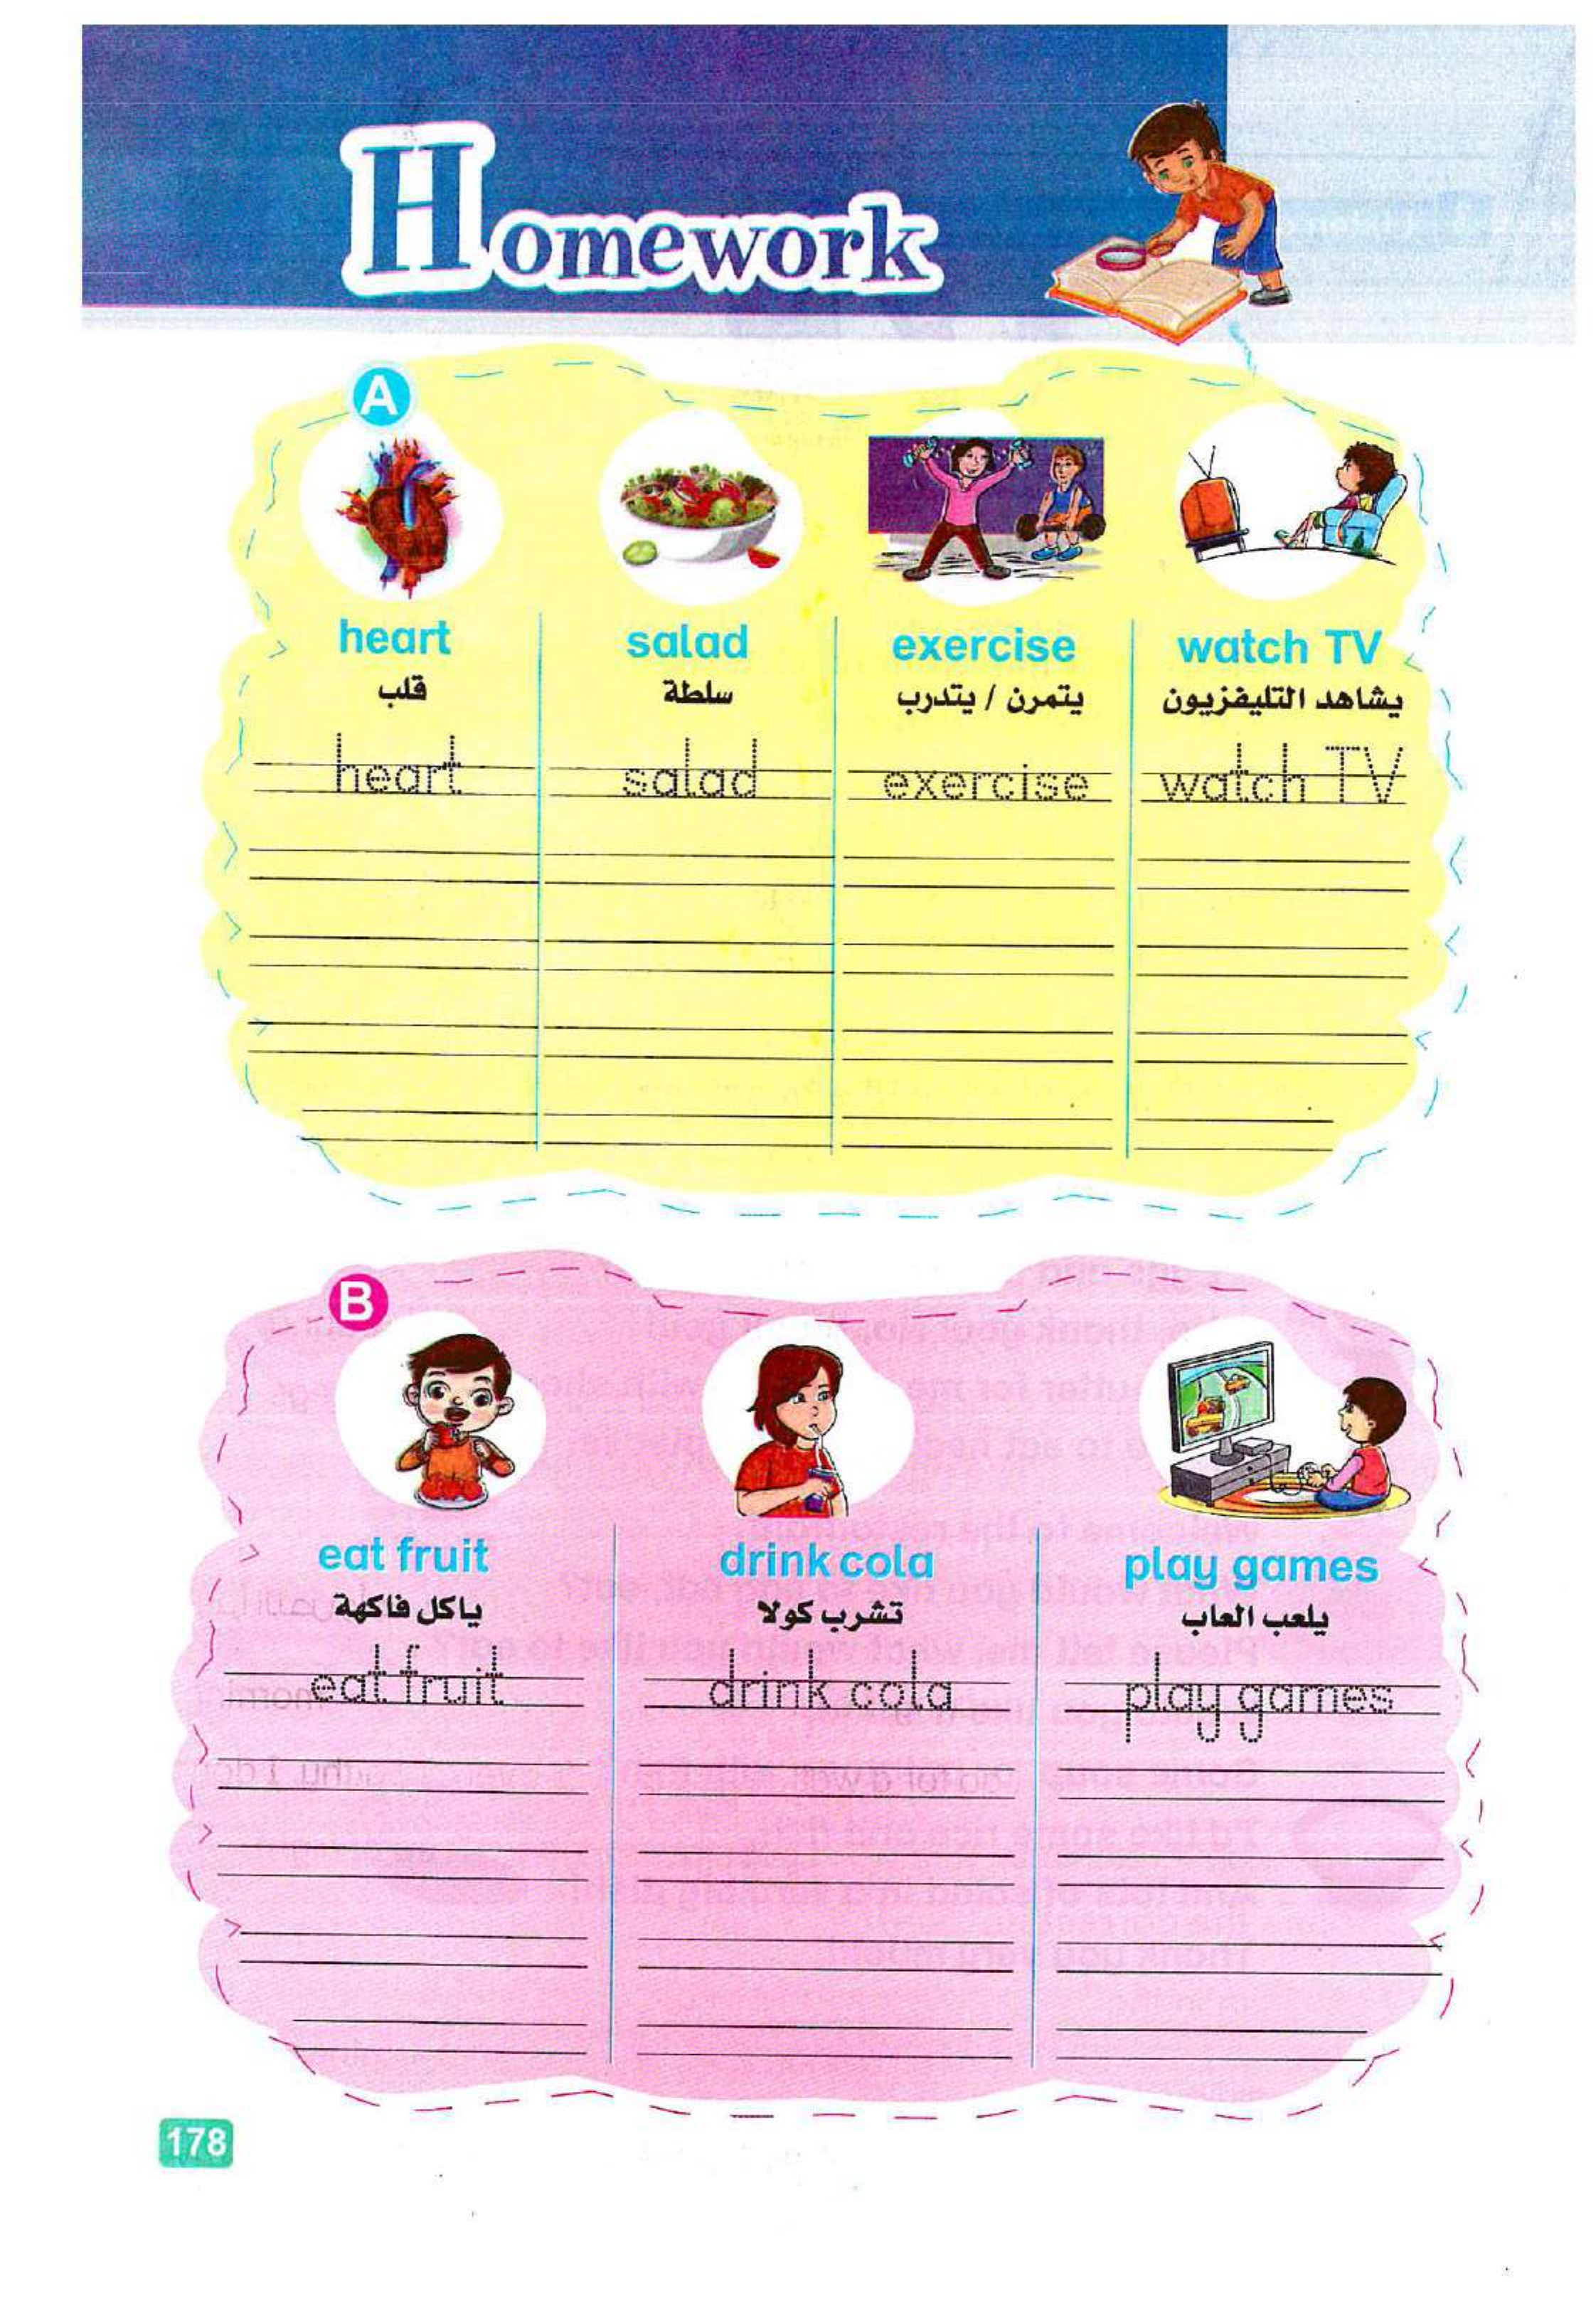 Homework
A
heart salad exercise watch TV
قلب سلطة يتمرن / يتدرب يشاهد التليفزيون
heart salad exercise watch TV
B
eat fruit drink cola play games
ياكل فاكهة تشرب كولا يلعب العاب
eat fruit drink cola play games
178